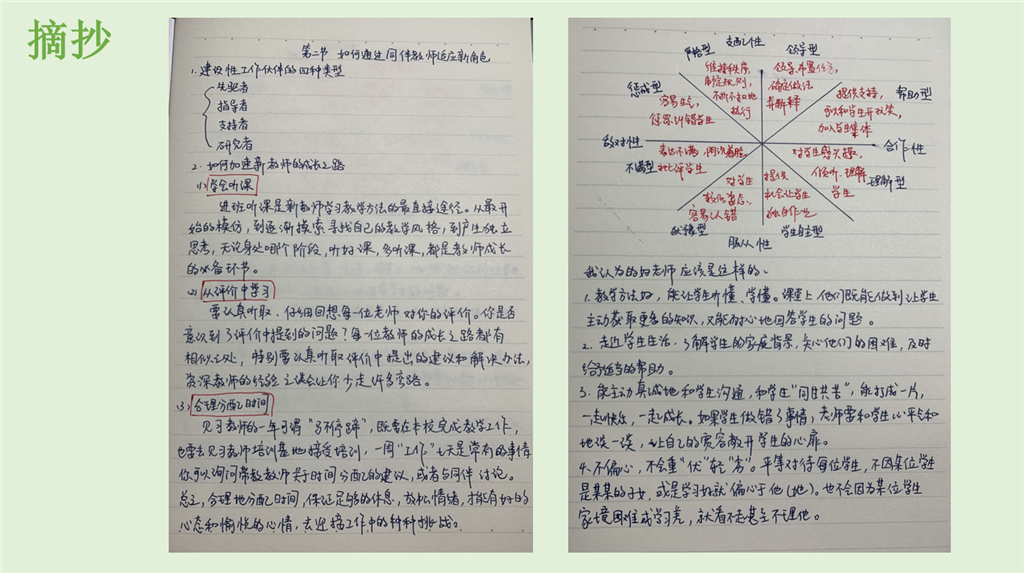 摘抄
第二节 如何通过同伴教师适应新角色
1.建设性工作伙伴的四种类型
失驰者
指导者
支持者
研究者
2.如何加速新教师的成长之路
(1)学会听课
进班听课是新教师学习教学方法的最直接途径。从最开
始的模仿,到逐渐摸索寻找自己的教学风格,到产生独立
思考,无论身处哪个阶段,听好课,多听课,都是教师成长
的必备环节。
(2)从评价中学习
要认真听取、仔细回想每一位老师对你的评价。你是否
意识到了评价中提到的问题?每一位教师的成长之路都有
相似之处,特别要认真听取评价中提出的建议和解决办法,
资深教师的经验之谈会让你少走许多弯路。
(3)合理分配时间
见习教师的一年可谓“马不停蹄”,既要在本校完成教学工作,
也要去见习教师培训基地接受培训,一周“工作”七天是常有的事情
你可以询问带教教师关于时间分配的建议,或者与同伴讨论。
总之,合理地分配时间,保证足够的休息,放松情绪,才能有好的
心态和愉悦的心情,去迎接工作中的种种挑战。
支配性
严格型
领导型
维持秩序,
制定规则,
不折不扣地
执行
领导、布置任务,
确定做法
并解释
惩戒型
容易生气,
惩罚训错学生
提供支持,
会和学生开玩笑,
加入学生集体
帮助型
敌对性
合作性
表达不满
批评学生
对学生感兴趣,
倾听、理解
学生
不满型
理解型
对学生
容易认错
提供
机会让学生
独自作业
学生自主型
服从性
我认为的好老师应该是这样的:
1.教学方法好,能让学生听懂、学懂。课堂上他们既能做到让学生
主动获取更多的知识,又能耐心地回答学生的问题。
2.走近学生生活,了解学生的家庭背景,关心他们的困难,及时
给予适当的帮助。
3.能主动真诚地和学生沟通,和学生“同甘共苦”,能打成一片,
一起快乐,一起成长。如果学生做错了事情,老师要和学生心平气和
地谈一谈,让自己的宽容敞开学生的心扉。
4.不偏心,不会重“优”轻“劣”。平等对待每位学生,不因某位学生
是某某的子女,或是学习好就偏心于他(她)。也不会因为某位学生
家境困难或学习差,就看不起甚至不理他。